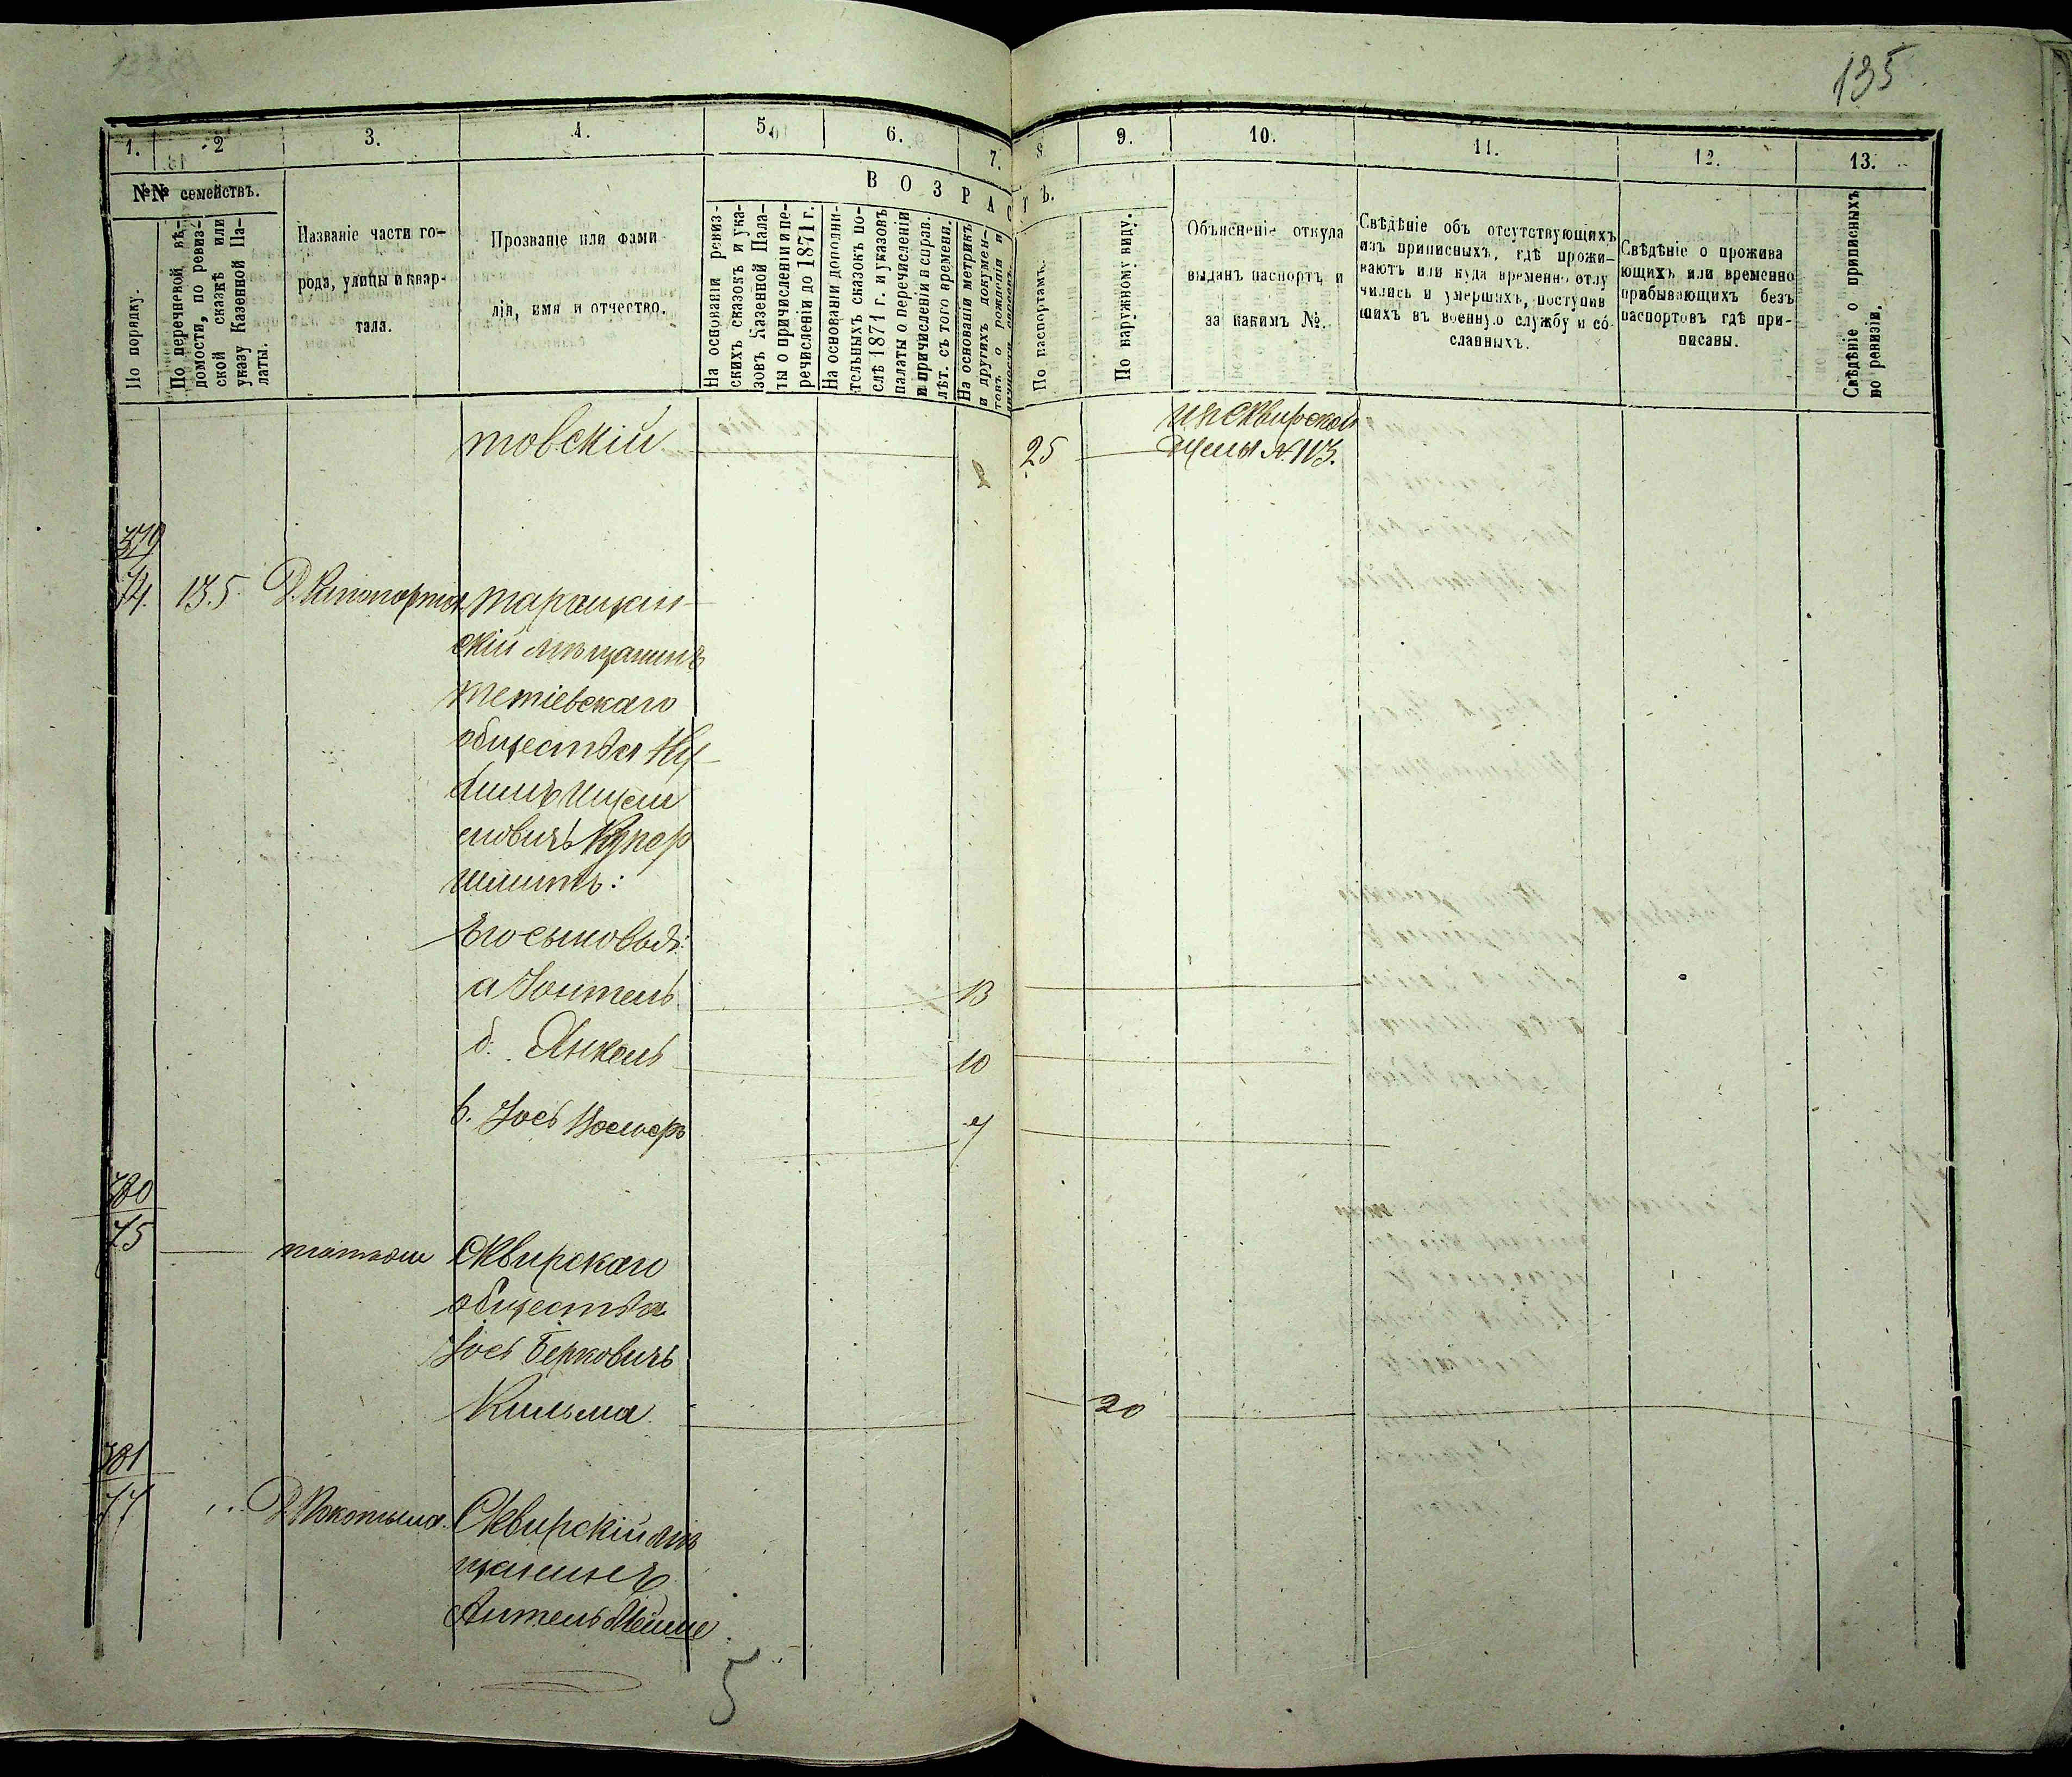 135
1.
2
3.
4.
5.
6.
7.
8.
9.
10.
11.
12.
13.
№№ семействъ.
В О З Р А С Т Ъ.
По порядку.
По перечневой вѣ-
домости, по ревиз-
ской сказкѣ или
указу Казенной Па-
латы.
Названіе части го-
рода, улицы и квар-
тала.
Прозваніе или фами
лія, имя и отчество.
На основаніи ревиз-
скихъ сказокъ и ука-
зовъ Казенной Пала-
ты о причисленіи и пе-
речисленіи до 1871 г.
На основаніи дополни-
тельныхъ сказокъ по-
слѣ 1871 г. и указовъ
палаты о перечисленіи
и причисленіи и справ.
лѣт. съ того времени.
На основаніи метрикъ
и другихъ докумен-
товъ о рожденіи и
По паспортамъ.
По наружному виду.
Объясненіе откуда
выданъ паспортъ и
за какимъ №.
Свѣдѣніе объ отсутствующихъ
изъ приписныхъ, гдѣ прожи-
ваютъ или куда временно отлу
чились и умершихъ, поступив
шихъ въ военную службу и со-
сланныхъ.
Свѣдѣніе о прожива
ющихъ или временно
прибывающихъ безъ
паспортовъ гдѣ при-
писаны.
Свѣдѣніе о приписныхъ
по ревизіи.
товскій
25
Сквирской
№ 113.
379
74.
135.
Таращан-
скій мѣщанинъ
Тетіевскаго
общества
Купер
шмитъ:
Его сыновья:
а
13
б. Янкель
10
в. Іось
7
380
75
тотъ же
Сквирскаго
общества
Іось Берковичъ
Кильма
20
381
77
Сквирскій мѣ
щанинъ
5